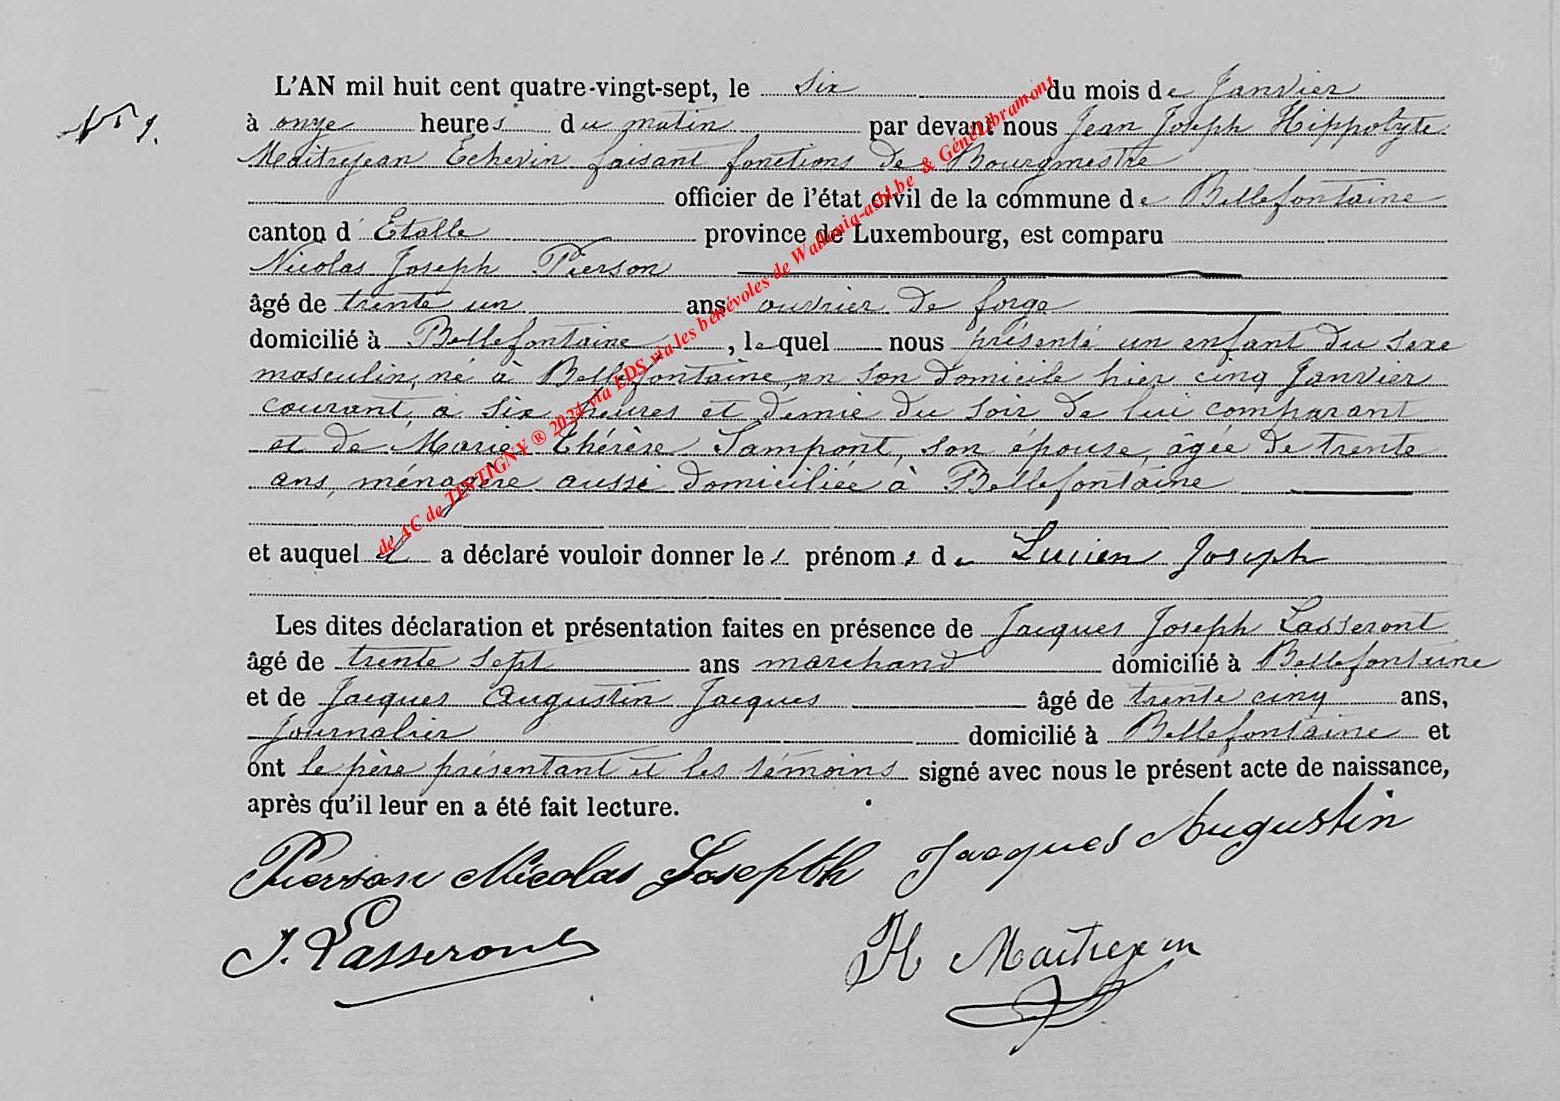 L'AN mil huit cent quatre-vingt-sept, le six du mois de Janvier
N° 1.
à onze heures du matin par devant nous Jean Joseph Hippolyte
Maitrejean Echevin faisant fonctions de Bourgmestre
officier de l'état civil de la commune de Bellefontaine
canton d' Etalle province de Luxembourg, est comparu
Nicolas Joseph Pierson
âgé de trente un ans ouvrier de forge
domicilié à Bellefontaine, lequel nous présenté un enfant du sexe
masculin, né à Bellefontaine, en son domicile hier cinq Janvier
courant, à six heures et demie du soir, de lui comparant
et de Marie Thérèse Sampont, son épouse, âgée de trente
ans, ménagère aussi domiciliée à Bellefontaine
et auquel il a déclaré vouloir donner les prénoms de Lucien Joseph
Les dites déclaration et présentation faites en présence de Jacques Joseph Lasseront
âgé de trente sept ans marchand domicilié à Bellefontaine
et de Jacques Augustin Jacques âgé de trente cinq ans,
journalier domicilié à Bellefontaine et
ont le père présentant et les témoins signé avec nous le présent acte de naissance,
après qu'il leur en a été fait lecture.
Pierson Nicolas Josepth Jacques Augustin
J. Lasseront H Maitrejean
de AC de TINTIGNY ® 2024 via EDS via les bénévoles de Wallonia-asbl.be & GénéLibramont